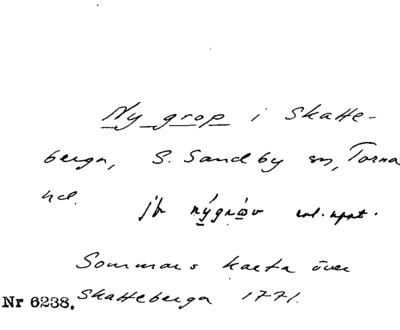 Ny grop i Skatte-
berga, S. Sandby sn, Torna
hd. jfr nýgrōv enl. uppt.
Sommars karta över
Skatteberga 1771.
Nr 6238.